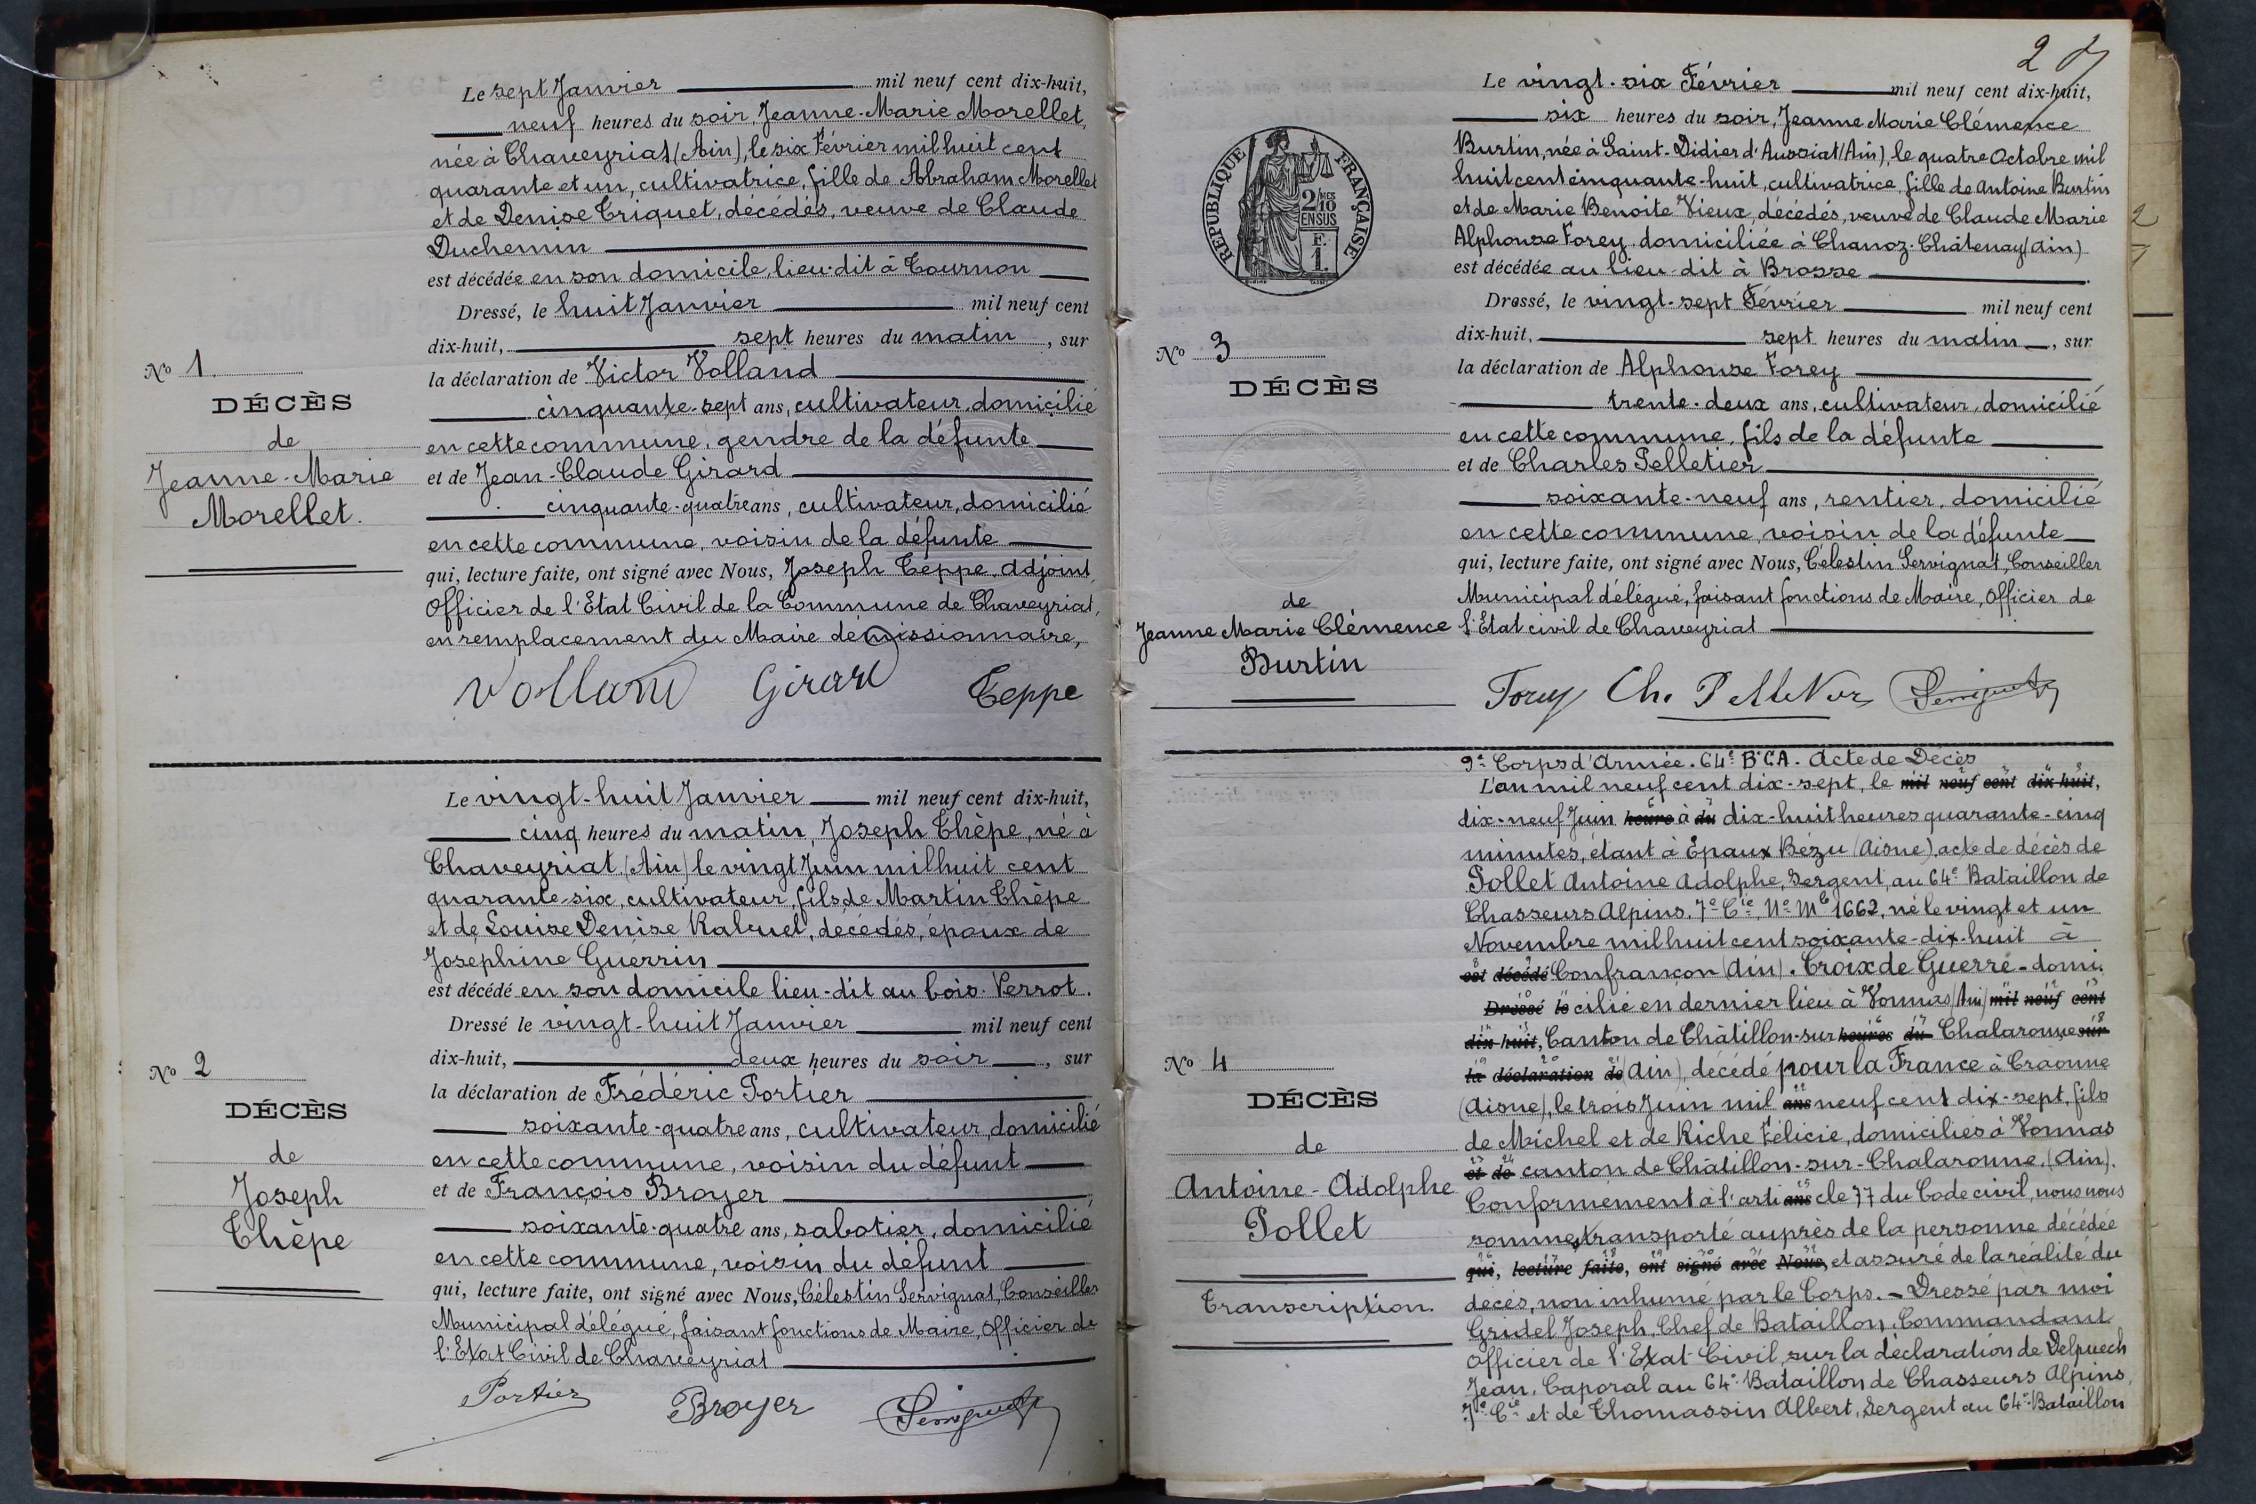 Le sept Janvier mil neuf cent dix-huit,
neuf heures du soir, Jeanne-Marie Morellet,
née à Chaveyriat (Ain), le six Février mil huit cent
quarante et un, cultivatrice, fille de Abraham Morellet
et de Denise Triquet, décédés, veuve de Claude
Duchemin
est décédée en son domicile, lieu-dit à Tournon
Dressé, le huit Janvier mil neuf cent
dix-huit, sept heures du matin, sur
la déclaration de Victor Volland
cinquante-sept ans, cultivateur, domicilié
en cette commune, gendre de la défunte
et de Jean-Claude Girard
cinquante-quatre ans, cultivateur, domicilié
en cette commune, voisin de la défunte
qui, lecture faite, ont signé avec Nous, Joseph Teppe, adjoint,
Officier de l'Etat Civil de la Commune de Chaveyriat,
en remplacement du Maire démissionnaire,
Volland Girard Teppe
No 1
DÉCÈS
de
Jeanne-Marie
Morellet.
Le vingt-huit Janvier mil neuf cent dix-huit,
cinq heures du matin, Joseph Thèpe, né à
Chaveyriat (Ain) le vingt Juin mil huit cent
quarante-six, cultivateur, fils de Martin Thèpe
et de Louise Denise Rabuel, décédés, époux de
Josephine Guerrin
est décédé en son domicile lieu-dit au bois Perrot.
Dressé le vingt-huit Janvier mil neuf cent
dix-huit, deux heures du soir, sur
la déclaration de Frédéric Portier
soixante-quatre ans, cultivateur, domicilié
en cette commune, voisin du défunt
et de François Broyer
soixante-quatre ans, sabotier, domicilié
en cette commune, voisin du défunt
qui, lecture faite, ont signé avec Nous, Célestin Servignat, Conseiller
Municipal délégué, faisant fonctions de Maire, Officier de
l'Etat Civil de Chaveyriat
Portier Broyer Servignat
No 2
DÉCÈS
de
Joseph
Thèpe
2
Le vingt-six Février mil neuf cent dix-huit,
six heures du soir, Jeanne Marie Clémence
Burtin, née à Saint-Didier d'Aussiat (Ain), le quatre Octobre mil
huit cent cinquante-huit, cultivatrice, fille de Antoine Burtin
et de Marie Benoite Vieux, décédés, veuve de Claude Marie
Alphonse Forey, domiciliée à Chanoz-Châtenay (Ain)
est décédée au lieu-dit à Brosse
Dressé, le vingt-sept Février mil neuf cent
dix-huit, sept heures du matin, sur
la déclaration de Alphonse Forey
trente-deux ans, cultivateur, domicilié
en cette commune, fils de la défunte
et de Charles Pelletier
soixante-neuf ans, rentier, domicilié
en cette commune, voisin de la défunte
qui, lecture faite, ont signé avec Nous, Célestin Servignat, Conseiller
Municipal délégué, faisant fonctions de Maire, Officier de
l'Etat civil de Chaveyriat
Forey Ch. Pelletier Servignat
RÉPUBLIQUE FRANÇAISE
2/10
EN SUS
F.
1.
No 3
DÉCÈS
de
Jeanne Marie Clémence
Burtin
9e Corps d'Armée. 64e B.C.A. Acte de Décès
L'an mil neuf cent dix-sept, le mil neuf cent dix-huit,
dix-neuf Juin heure à du dix-huit heures quarante-cinq
minutes, étant à Epaux Bézu (Aisne), acte de décès de
Pollet Antoine Adolphe, Sergent, au 64e Bataillon de
Chasseurs Alpins, 7e Cie, No Mle 1662, né le vingt et un
Novembre mil huit cent soixante-dix-huit à
est décédé Confrançon (Ain). Croix de Guerre - domi-
Dressé le cilié en dernier lieu à Vonnas (Ain) mil neuf cent
dix-huit, Canton de Châtillon-sur heures du Chalaronne sur
la déclaration de (Ain), décédé pour la France à Craonne
(Aisne), le trois Juin mil ans neuf cent dix-sept, fils
de Michel et de Riche Félicie, domiciliés à Vonnas
et de canton de Châtillon-sur-Chalaronne, (Ain).
Conformément à l'arti ans cle 77 du Code civil, nous nous
sommes transporté auprès de la personne décédée
qui, lecture faite, ont signé avec Nous, et assuré de la réalité du
décès, non inhumé par le Corps. - Dressé par moi
Gridel Joseph, Chef de Bataillon, Commandant
Officier de l'Etat-Civil, sur la déclaration de Delpuech
Jean, Caporal au 64e Bataillon de Chasseurs Alpins,
7e Cie et de Thomassin Albert, Sergent au 64e Bataillon
No 4
DÉCÈS
de
Antoine-Adolphe
Pollet
Transcription.